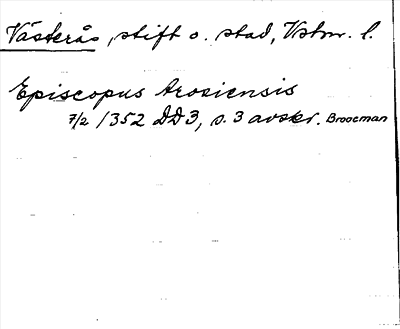 Västerås, stift o. stad, Vstm. l.
Episcopus Arosiensis
7/2 1352 DD3, s. 3 avskr. Broocman